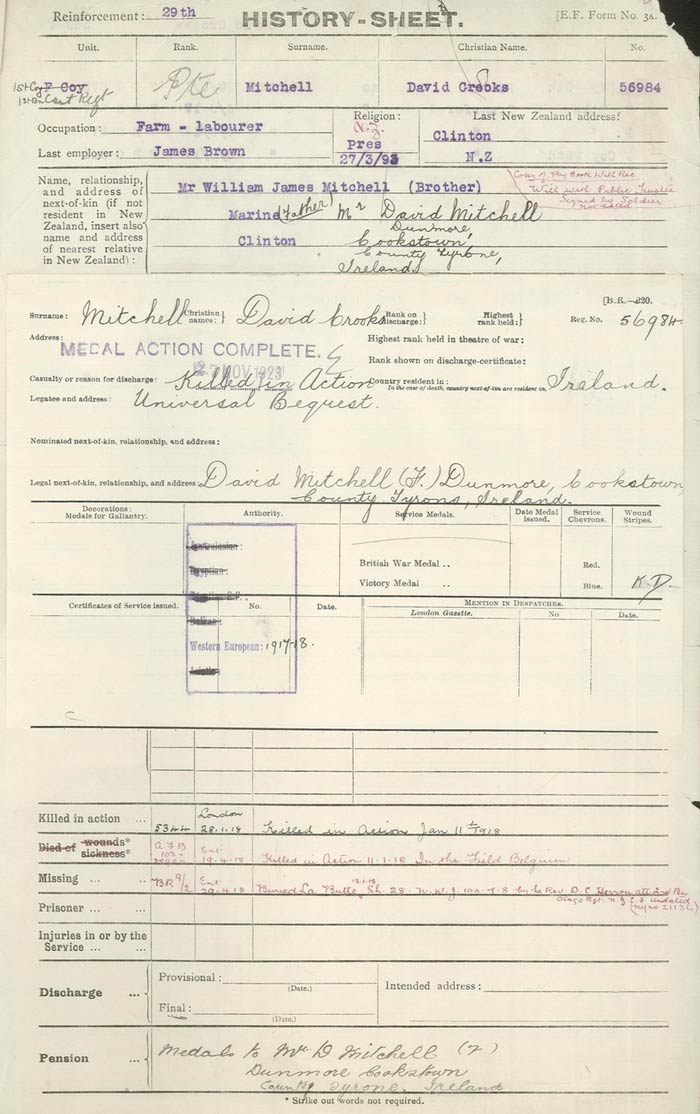 Reinforcement: 29th HISTORY-SHEET. [E.F. Form No. 3A.
Unit. Rank. Surname. Christian Name. No.
1st Coy F Coy Pte Mitchell David Crooks 56984
1st Bn Cant Regt
Occupation: Farm - Labourer Religion: N.Z. Pres Last New Zealand address: Clinton
Last employer: James Brown 27/3/93 N.Z
Copy of Pay Book Will Rec
Will with Public Trustee
Signed by Soldier
not dated
Name, relationship, and address of next-of-kin (if not resident in New Zealand, insert also name and address of nearest relative in New Zealand):
Mr William James Mitchell (Brother)
Marine (Father) Mr David Mitchell
Clinton Dunmore,
Cookstown,
County Tyrone,
Ireland.
[B.R.—220.
Surname: Mitchell Christian names: David Crooks Rank on discharge: Highest rank held: Reg. No. 56984
Address: Highest rank held in theatre of war:
MEDAL ACTION COMPLETE.
27 NOV 1923
Rank shown on discharge-certificate:
Casualty or reason for discharge: Killed in Action Country resident in: Ireland.
In the case of death, country next-of-kin are resident in.
Legatee and address: Universal Bequest.
Nominated next-of-kin, relationship, and address:
Legal next-of-kin, relationship, and address: David Mitchell (F.) Dunmore, Cookstown,
County Tyrone, Ireland.
Decorations: Medals for Gallantry. Authority. Service Medals. Date Medal Issued. Service Chevrons. Wound Stripes.
Australasian:
Egyptian:
British War Medal .. Red.
Victory Medal .. Blue. K.D.
Egyptian E.F.
Certificates of Service issued. No. Date. MENTION IN DESPATCHES.
London Gazette. No Date.
Balkan:
Western European: 1917-18.
Asiatic:
Killed in action ... 5344 London 28.1.18 Killed in Action Jan 11th 1918
Died of wounds* sickness* A.F.B 103 Ext 19.4.18 Killed in Action 11.1.18 In the Field Belgium
Missing ... ... BR 9/2 Ext 29.4.18 12.1.18 Buried La Butte, Sh. 28. N.W. J. 10a.7.8 by the Rev. D. C. Herron att 2nd Bn
Otago Rgt. N.Z.E.F. undated
Prisoner ... ...
Injuries in or by the Service ... ...
Discharge ... Provisional: (Date.) Intended address:
Final: (Date.)
Pension ... Medals to Mr. D Mitchell (F)
Dunmore Cookstown
County Tyrone. Ireland
* Strike out words not required.